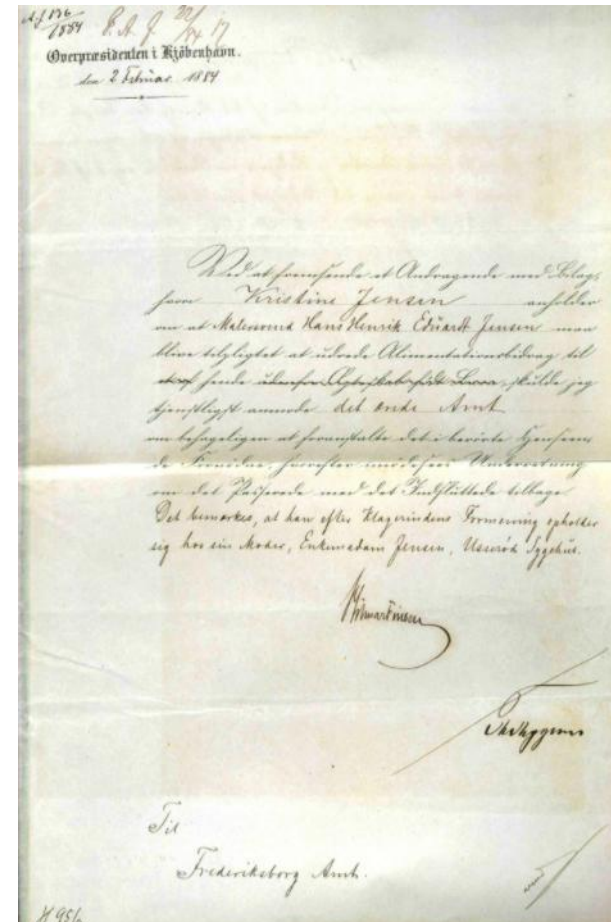 A.J. 136/1884
Overpræsidenten i Kjöbenhavn.
den 2 Februar 1884
Ved at fremsende et Andragende med Bilag,
hvori Kristine Jensen anholder
om at Malersvend Hans Henrik Eduardt Jensen maa
blive tilpligtet at udrede Alimentationsbidrag til
hende udenfor Ægteskab født Barn, skulde jeg
tjenstligst anmode det ærede Amt
om behageligen at foranstalte det i berørte Henseen-
de Fornødne, hvorefter imødesees Underretning
om det Passerede med det Indsluttede tilbage.
Det bemærkes, at han efter Klagerindens Formening opholder
sig hos sin Moder, Enkemadam Jensen, Usseröd Sygehus.
Til
Frederiksborg Amt.